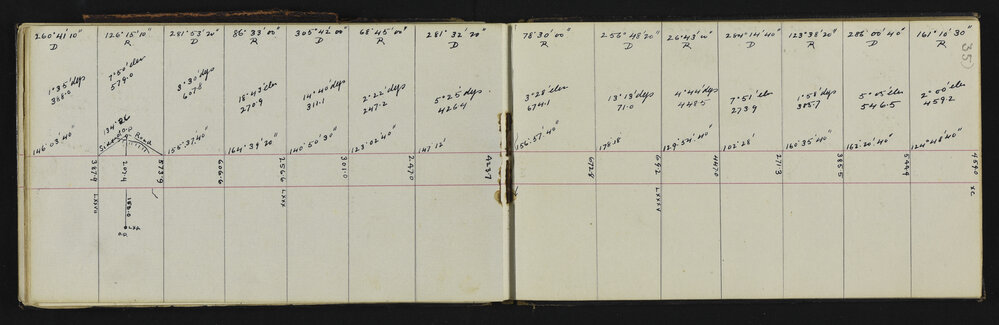 260°41'10"
D
1°35'deps
388.0
146°03'40"
387.9
LXXVII
126°15'10"
R
7°50'elev
579.0
134.86
Road
207.4
573.9
188.0
LXX
281°53'20"
D
3°30'deps
607.8
155°37'40"
606.6
86°33'00"
R
18°43'elev
270.9
164°39'20"
256.6
LXXX
305°42'00"
D
14°40'deps
311.1
140°50'30"
301.0
68°45'00"
R
2°22'deps
247.2
123°02'40"
247.0
281°32'20"
D
5°25'deps
426.4
147°12'
428.7
78°30'00"
R
3°28'elev
674.1
156°57'40"
672.9
256°48'20"
D
13°13'deps
71.0
178.18
69.2
LXXXV
26°43'00"
R
4°44'deps
448.5
129°54'40"
447.0
284°14'40"
D
7°51'elev
273.9
102°28'
271.3
123°38'20"
R
1°58'deps
385.7
160°35'40"
385.5
286°00'40"
D
5°05'elev
546.5
162°20'40"
544.4
161°10'30"
R
2°00'elev
459.2
124°48'40"
459.0
XC
35